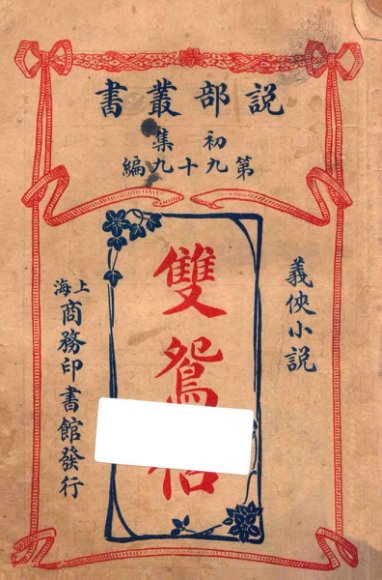 説部叢書
初集
第九十九編
義俠小説
雙鴛
上海商務印書館發行